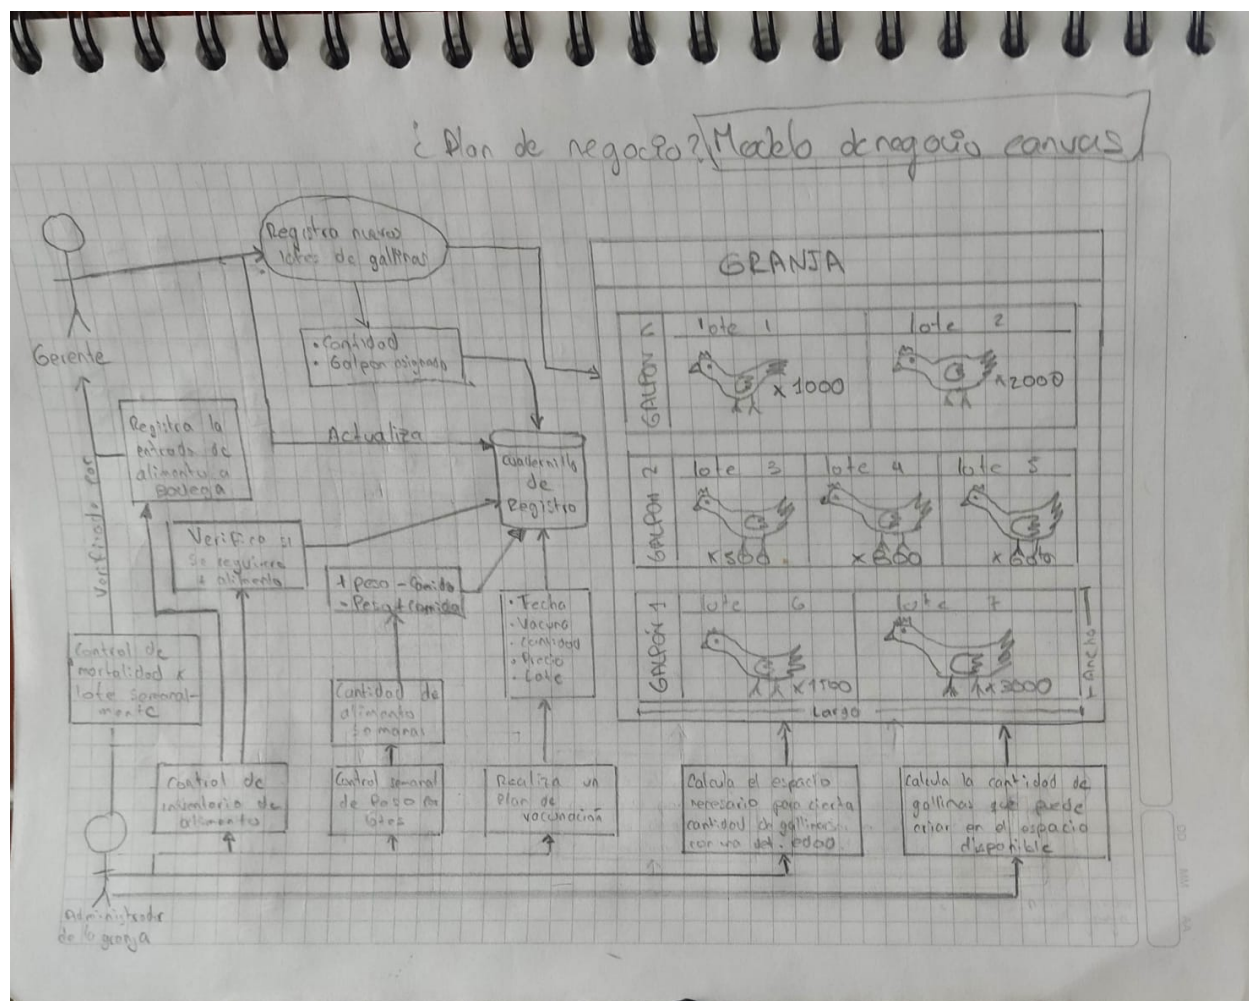 ¿Plan de negocio? Modelo de negocio canvas
Registra nuevos
lotes de gallinas
Gerente
• Cantidad
• Galpon asignado
Actualiza
Cuadernillo
de
Registro
Registra la
entrada de
alimento a
Bodega
Verificado por
Verifica si
se requiere
+ alimento
+ peso - comida
- Peso + comida
• Fecha
• Vacuna
• Cantidad
• Precio
• Lote
Control de
mortalidad x
lote semanal-
mente
Cantidad de
alimento
semanas
Control de
inventario de
alimento
Control semanal
de peso por
lotes
Realiza un
Plan de
vacunación
Calcula el espacio
necesario para cierta
cantidad de gallinas
con una det. edad
Calcula la cantidad de
gallinas que puede
criar en el espacio
disponible
Administrador
de la granja
GRANJA
GALPON
lote 1
x 1000
lote 2
x 2000
GALPON 2
lote 3
x 500
lote 4
x 800
lote 5
x 600
GALPON 1
lote 6
x 1500
lote 7
x 3000
Ancho
Largo